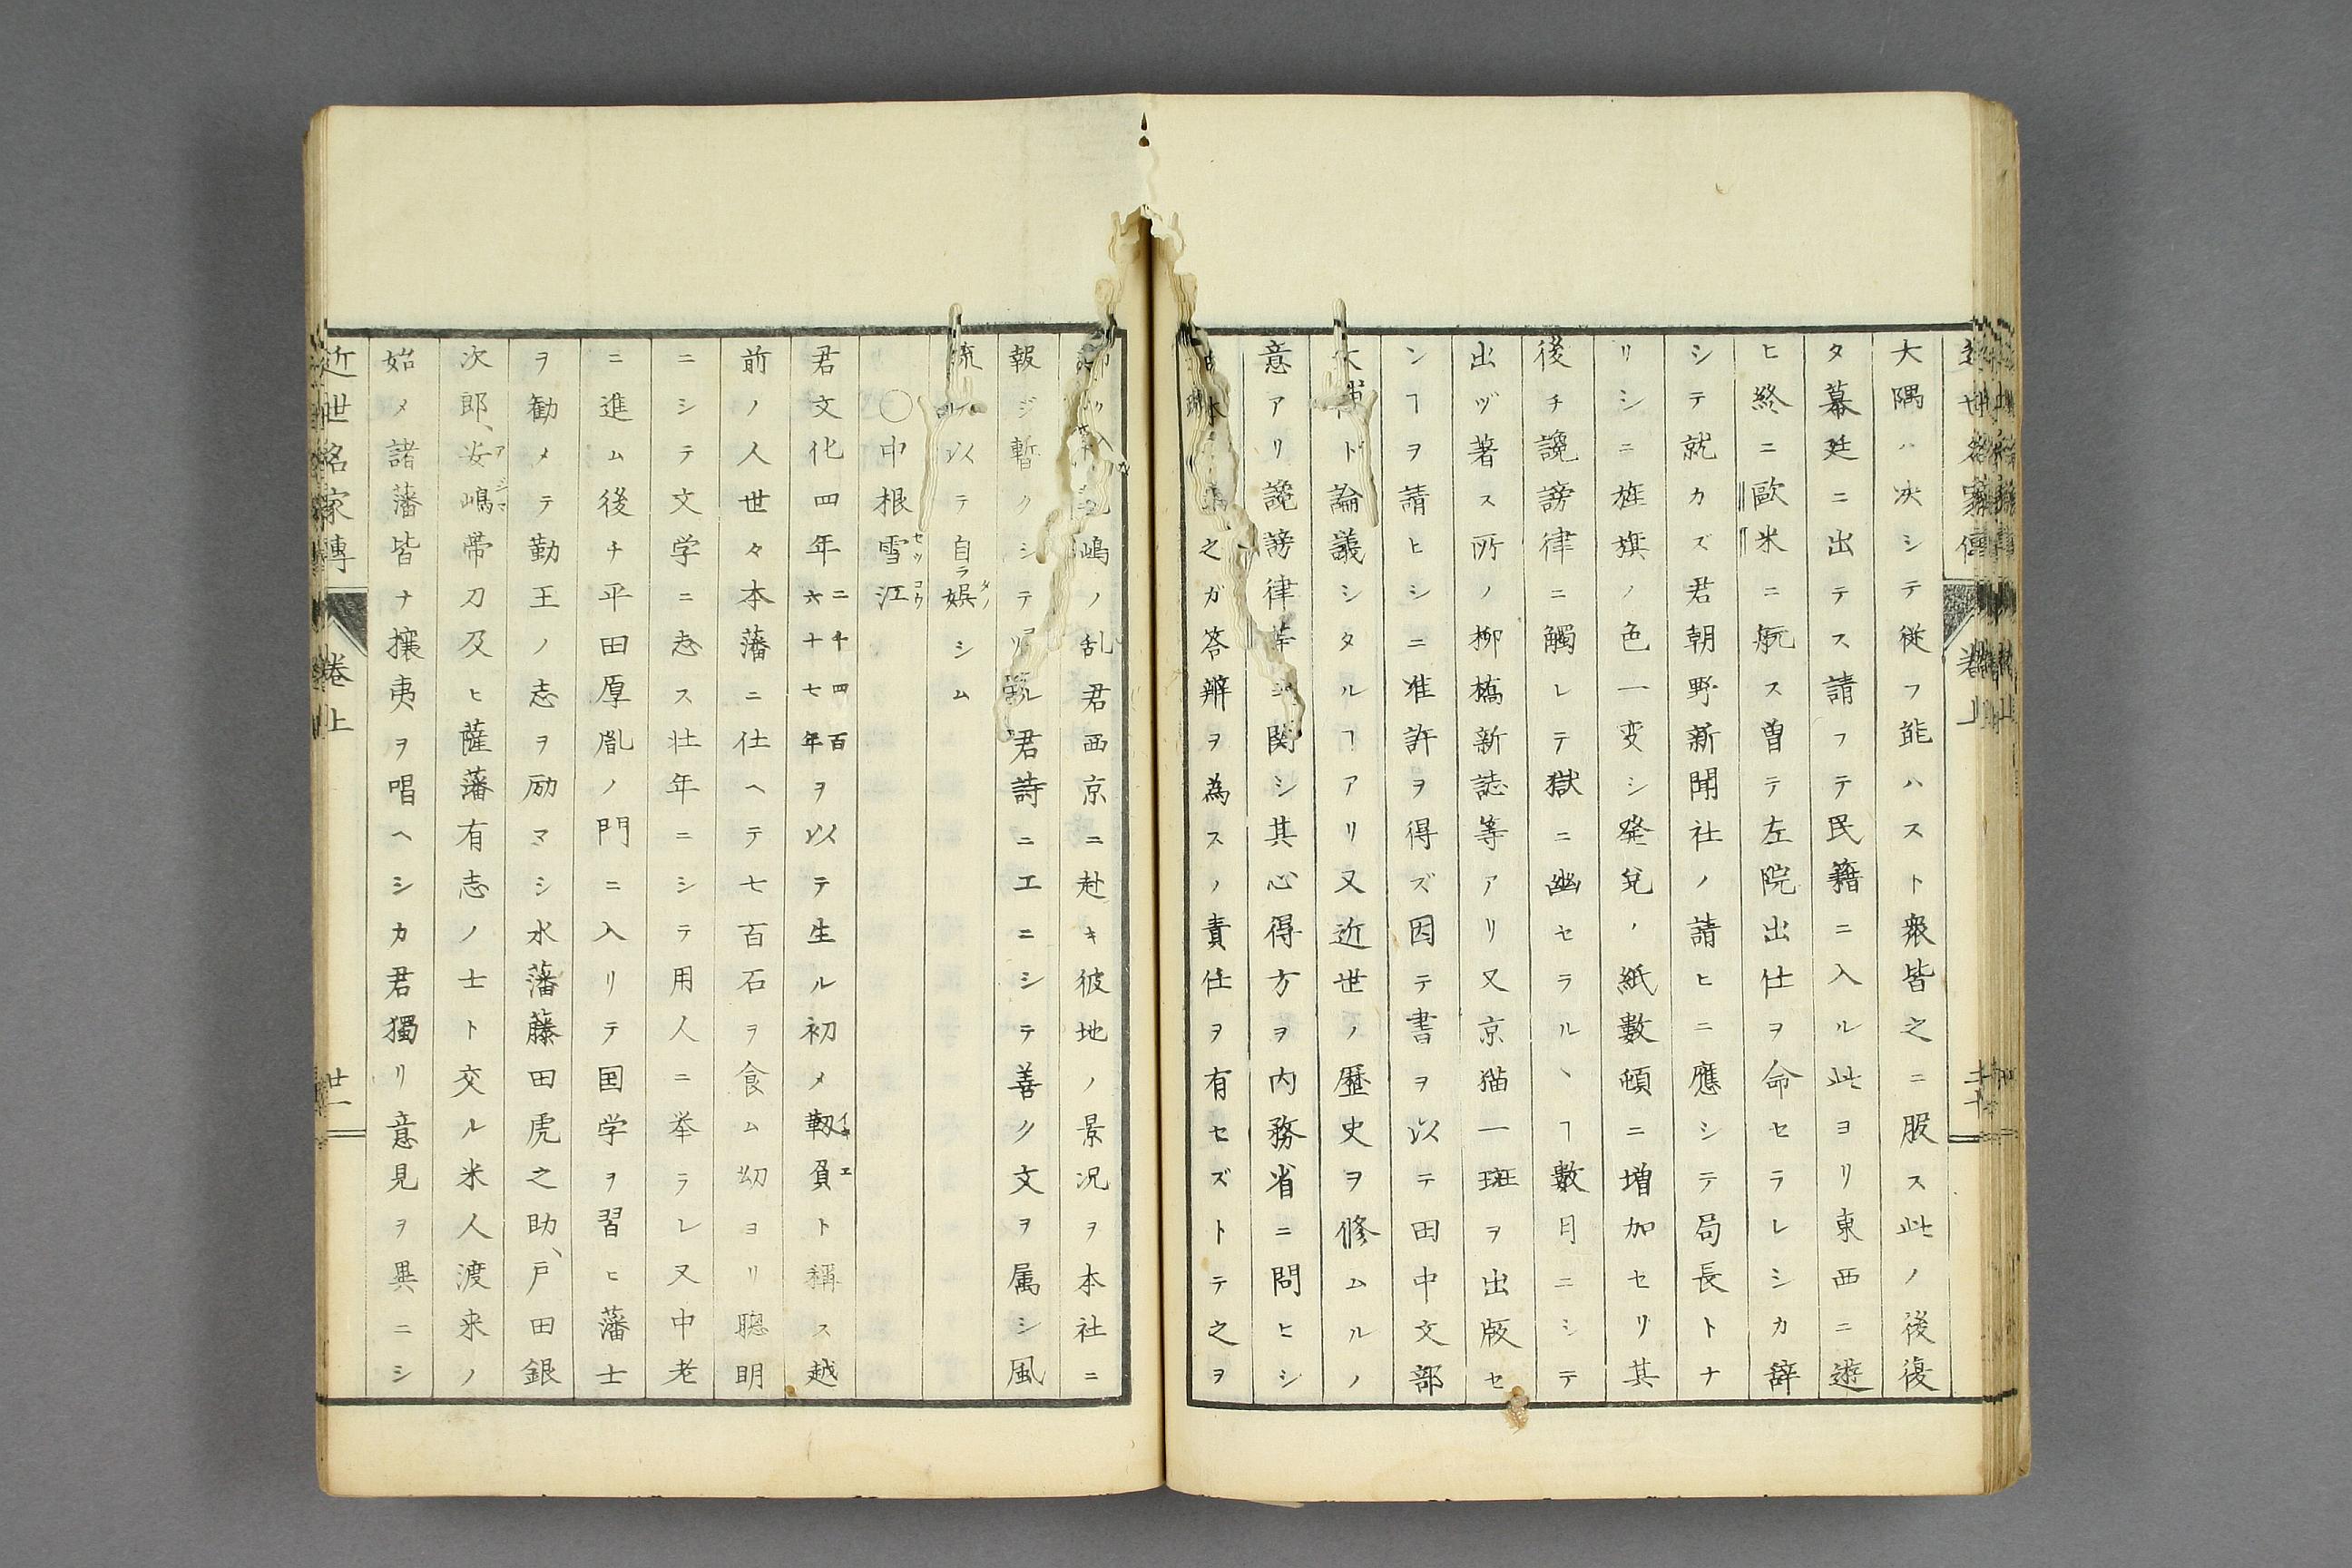 大隅ハ决シテ従フ能ハスト衆皆之ニ服ス此ノ後復
タ幕廷ニ出テス請フテ民籍ニ入ル此ヨリ東西ニ遊
ヒ終ニ歐米ニ航ス曽テ左院出仕ヲ命セラレシカ辞
シテ就カズ君朝野新聞社ノ請ヒニ應シテ局長トナ
リシニ旌旗ノ色一変シ発兌ノ紙數頓ニ増加セリ其
後チ讒謗律ニ觸レテ獄ニ幽セラルヽヿ數月ニシテ
出ヅ著ス所ノ柳橋新誌等アリ又京猫一斑ヲ出版セ
ンヿヲ請ヒシニ准許ヲ得ズ因テ書ヲ以テ田中文部
ド論議シタルヿアリ又近世ノ歴史ヲ修ムルノ
意アリ讒謗律ニ関シ其心得方ヲ内務省ニ問ヒシ
之ガ答辨ヲ為スノ責仕ヲ有セズトテ之ヲ
嶋ノ乱君西京ニ赴キ彼地ノ景况ヲ本社ニ
報ジ暫クシテ帰ル君詩ニエニシテ善ク文ヲ属シ風
流以テ自ラ娯シム
〇中根雪江
君文化四年二千四百六十七年ヲ以テ生ル初メ靱負ト稱ス越
前ノ人世々本藩ニ仕ヘテ七百石ヲ食ム幼ヨリ聰明
ニシテ文学ニ志ス壮年ニシテ用人ニ举ラレ又中老
ニ進ム後チ平田厚胤ノ門ニ入リテ国学ヲ習ヒ藩士
ヲ勧メテ勤王ノ志ヲ励マシ水藩藤田虎之助、戸田銀
次郎、安嶋帶刀及ヒ薩藩有志ノ士ト交ル米人渡来ノ
始メ諸藩皆ナ攘夷ヲ唱ヘシカ君獨リ意見ヲ異ニシ
近世名家傳 卷上 廿一